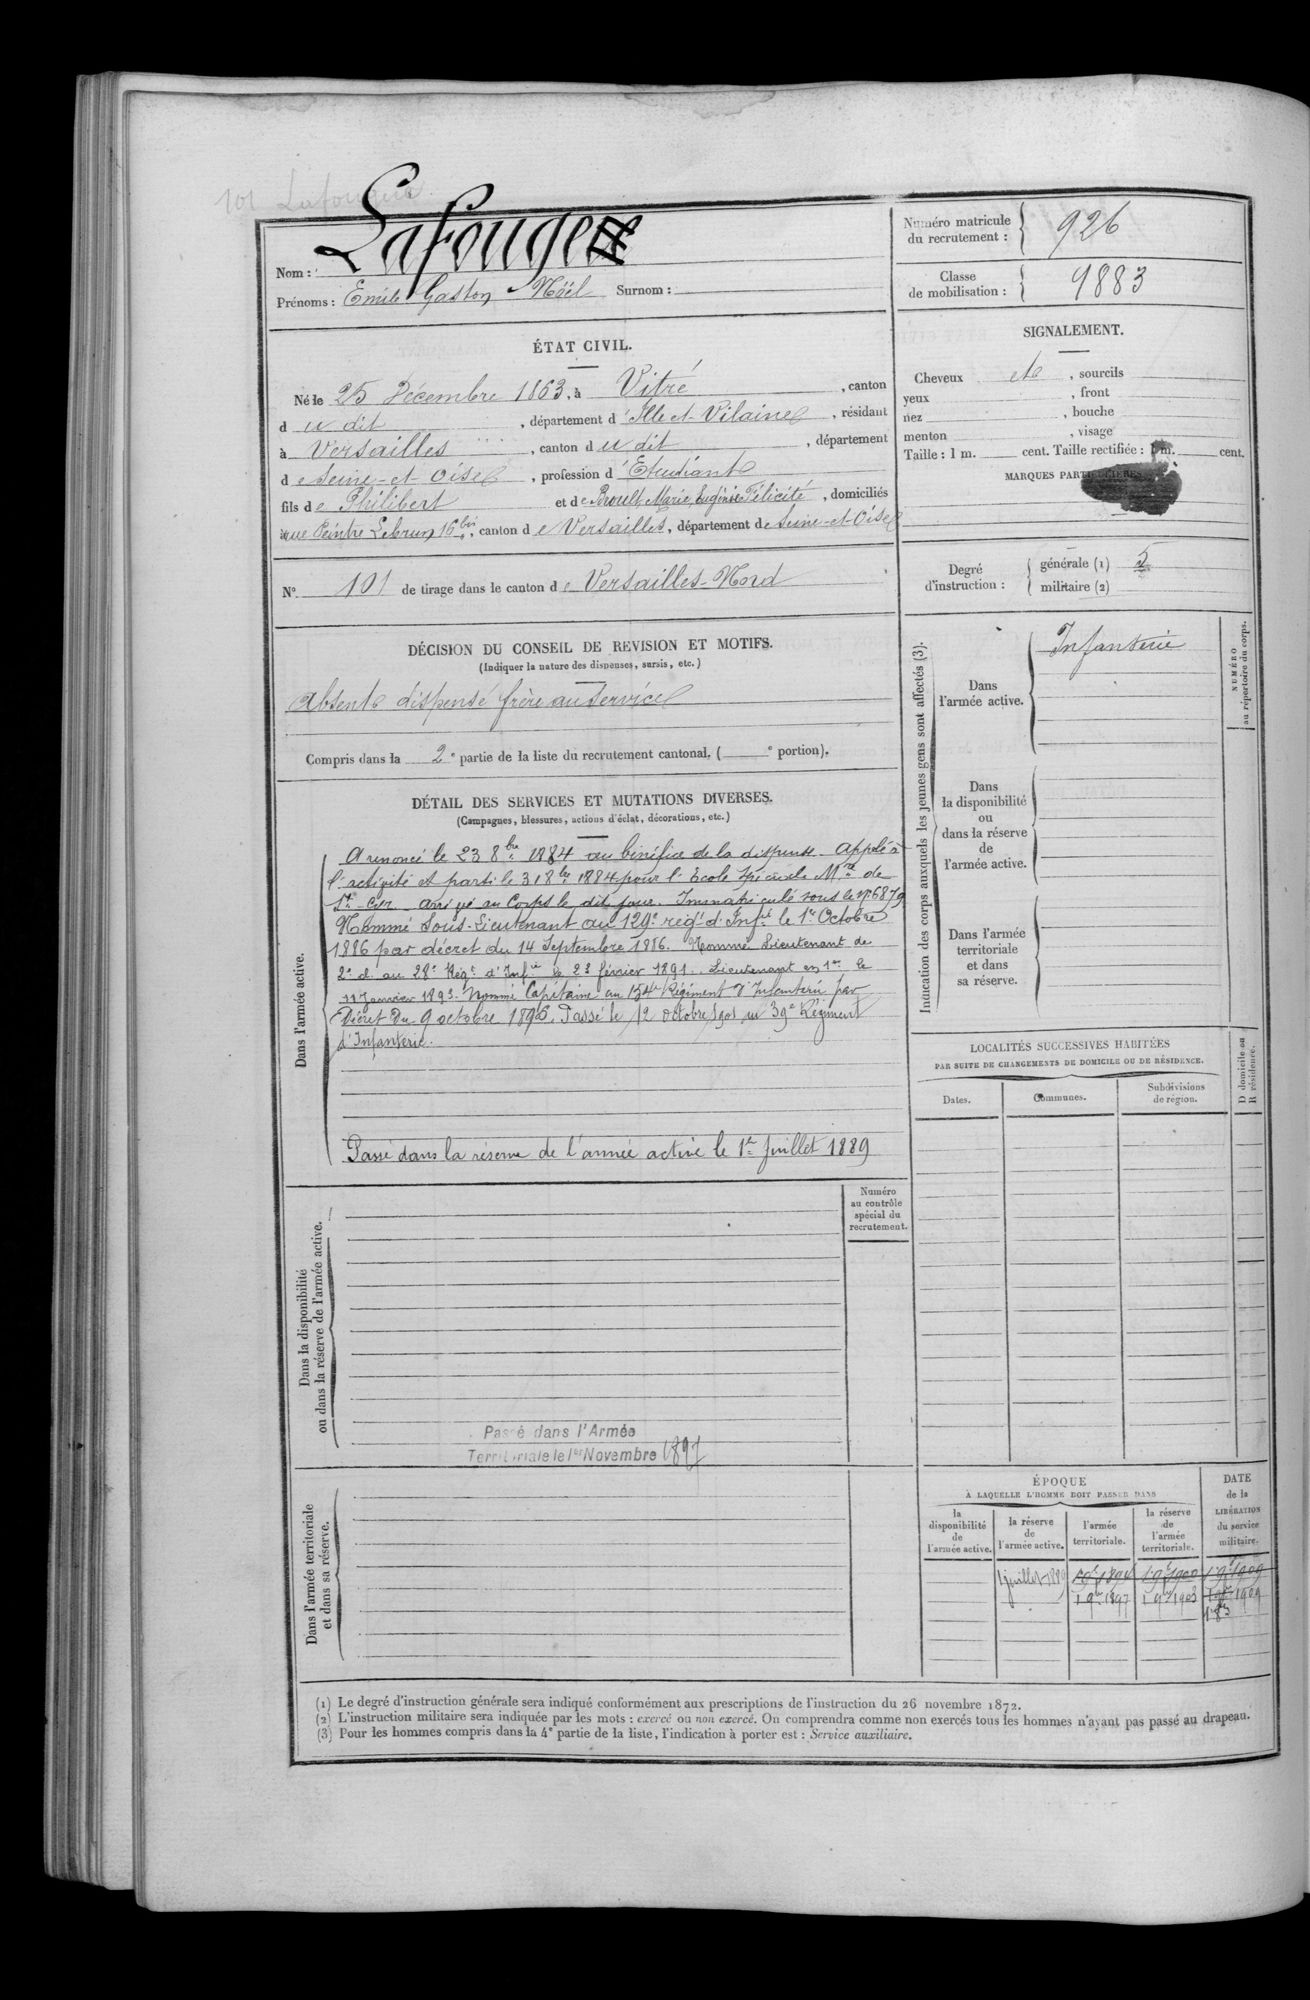 101 Lafougère
Lafouge
Nom :
Prénoms : Emile Gaston Noël Surnom :
Numéro matricule
du recrutement : 926
Classe
de mobilisation : 9883
ÉTAT CIVIL.
Né le 25 Décembre 1863, à Vitré, canton
du dit, département d'Ille et Vilaine, résidant
à Versailles, canton du dit, département
de Seine-et-Oise, profession d'Etudiant
fils de Philibert et de Proult, Marie, Eugénie Félicité, domiciliés
à rue Peintre Lebrun 16 bis, canton de Versailles, département de Seine-et-Oise
N° 101 de tirage dans le canton de Versailles-Nord
DÉCISION DU CONSEIL DE REVISION ET MOTIFS.
(Indiquer la nature des dispenses, sursis, etc.)
Absent dispensé frère au service
Compris dans la 2e partie de la liste du recrutement cantonal. ( e portion).
DÉTAIL DES SERVICES ET MUTATIONS DIVERSES.
(Campagnes, blessures, actions d'éclat, décorations, etc.)
Dans l'armée active.
A renoncé le 23 8bre 1884 au bénéfice de la dispense. Appelé à
l'activité et parti le 31 8bre 1884 pour l'Ecole Spéciale Mre de
St Cyr. Arrivé au Corps le dit jour. Immatriculé sous le n° 6879
Nommé Sous-Lieutenant au 129e régt d'Infie le 1er Octobre
1886 par décret du 14 Septembre 1886. Nommé Lieutenant de
2e cl. au 28e Régt d'Infie le 23 février 1891. Lieutenant en 1er le
11 Janvier 1893. Nommé Capitaine au 154e Régiment d'Infanterie par
Décret du 9 octobre 1896. Passé le 12 octobre 1901 au 39e Régiment
d'Infanterie.
Passé dans la réserve de l'armée active le 1er Juillet 1889
Dans la disponibilité
ou dans la réserve de l'armée active.
Numéro
au contrôle
spécial du
recrutement.
Passé dans l'Armée
Territoriale le 1er Novembre 1897
Dans l'armée territoriale
et dans sa réserve.
SIGNALEMENT.
Cheveux , sourcils
yeux , front
nez , bouche
menton , visage
Taille : 1 m. cent. Taille rectifiée : 1 m. cent.
MARQUES PARTICULIÈRES
Degré
d'instruction :
générale (1) 5
militaire (2)
Indication des corps auxquels les jeunes gens sont affectés (3).
NUMÉRO
au répertoire du corps.
Dans
l'armée active.
Infanterie
Dans
la disponibilité
ou
dans la réserve
de
l'armée active.
Dans l'armée
territoriale
et dans
sa réserve.
LOCALITÉS SUCCESSIVES HABITÉES
PAR SUITE DE CHANGEMENTS DE DOMICILE OU DE RÉSIDENCE.
D domicile ou
R résidence.
Dates.
Communes.
Subdivisions
de région.
ÉPOQUE
À LAQUELLE L'HOMME DOIT PASSER DANS
DATE
de la
LIBÉRATION
du service
militaire.
la
disponibilité
de
l'armée active.
la réserve
de
l'armée active.
l'armée
territoriale.
la réserve
de
l'armée
territoriale.
1 juillet 1889 1900 1909
1 9bre 1897 1 9bre 1903 1909
(1) Le degré d'instruction générale sera indiqué conformément aux prescriptions de l'instruction du 26 novembre 1872.
(2) L'instruction militaire sera indiquée par les mots : exercé ou non exercé. On comprendra comme non exercés tous les hommes n'ayant pas passé au drapeau.
(3) Pour les hommes compris dans la 4e partie de la liste, l'indication à porter est : Service auxiliaire.